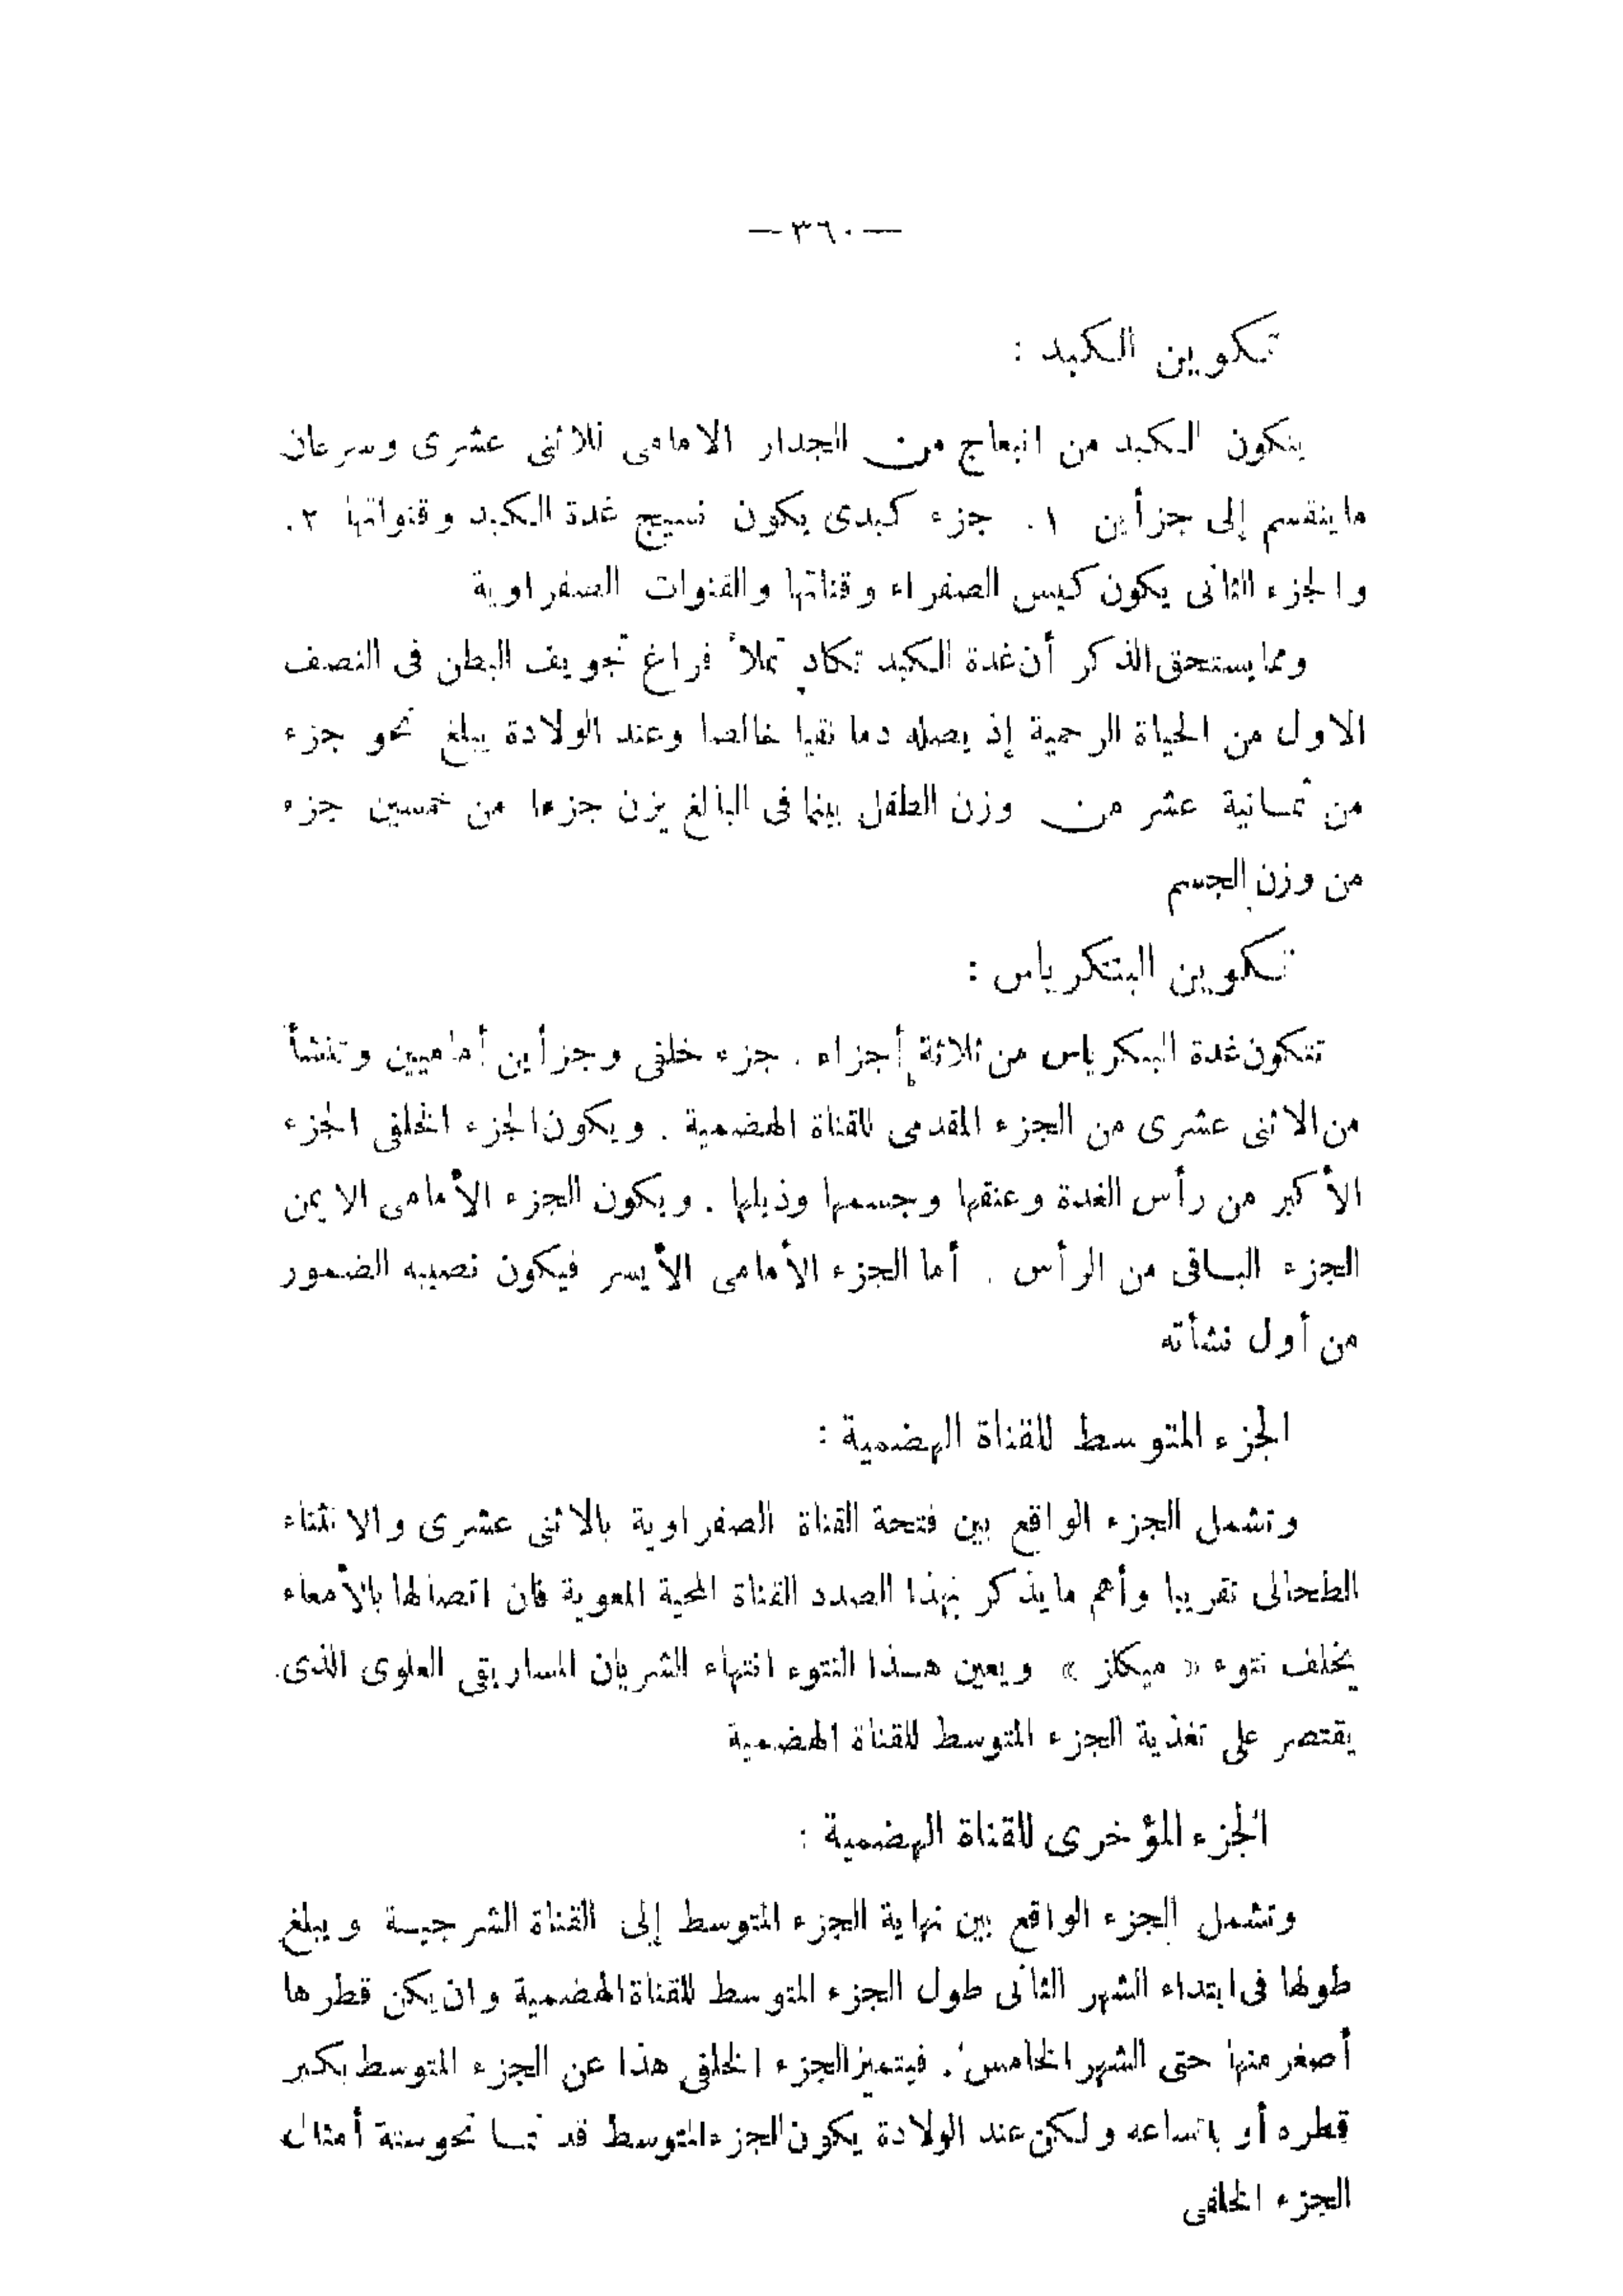 — ٣٦٠ —
تكوين الكبد :
يتكون الكبد من انبعاج من الجدار الامامى للاثنى عشرى وسرعان
ما ينقسم إلى جزأين ١. جزء كبدى يكون نسيج غدة الكبد وقنواتها ٢.
والجزء الثانى يكون كيس الصفراء وقناتها والقنوات الصفراوية
ومما يستحق الذكر أن غدة الكبد تكاد تملأ فراغ تجويف البطن فى النصف
الاول من الحياة الرحمية إذ يصله دما نقيا خالصا وعند الولادة يبلغ نحو جزء
من ثمانية عشر من وزن الطفل بينما فى البالغ يزن جزءا من خمسين جزء
من وزن الجسم
تكوين البنتكرياس :
تتكون غدة البنكرياس من ثلاثة أجزاء . جزء خلفى وجزأين أماميين وتنشأ
من الاثنى عشرى من الجزء المقدمى للقناة الهضمية . ويكون الجزء الخلفى الجزء
الأكبر من رأس الغدة وعنقها وجسمها وذيلها . ويكون الجزء الأمامى الايمن
الجزء الباقى من الرأس . أما الجزء الأمامى الأيسر فيكون نصيبه الضمور
من أول نشأته
الجزء المتوسط للقناة الهضمية :
وتشمل الجزء الواقع بين فتحة القناة الصفراوية بالاثنى عشرى والانثناء
الطحالى تقريبا وأهم ما يذكر بهذا الصدد القناة المحية المعوية فان اتصالها بالأمعاء
يخلف نتوء « ميكلز » ويعين هذا النتوء انتهاء الشريان المساريقى العلوى الذى
يقتصر على تغذية الجزء المتوسط للقناة الهضمية
الجزء المؤخرى للقناة الهضمية :
وتشمل الجزء الواقع بين نهاية الجزء المتوسط إلى القناة الشرجية ويبلغ
طولها فى ابتداء الشهر الثانى طول الجزء المتوسط للقناة الهضمية وان يكن قطرها
أصغر منها حتى الشهر الخامس . فيتميز الجزء الخلفى هذا عن الجزء المتوسط بكبر
قطره أو باتساعه ولكن عند الولادة يكون الجزء المتوسط قد نما نحو ستة أمثال
الجزء الخلفى